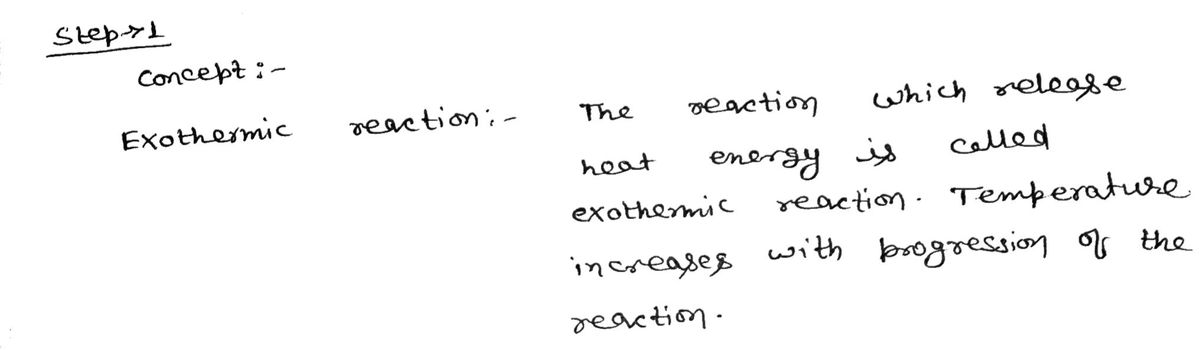 Step→1
Concept :-
Exothermic reaction :- The reaction which release
heat energy is called
exothermic reaction. Temperature
increases with progression of the
reaction.